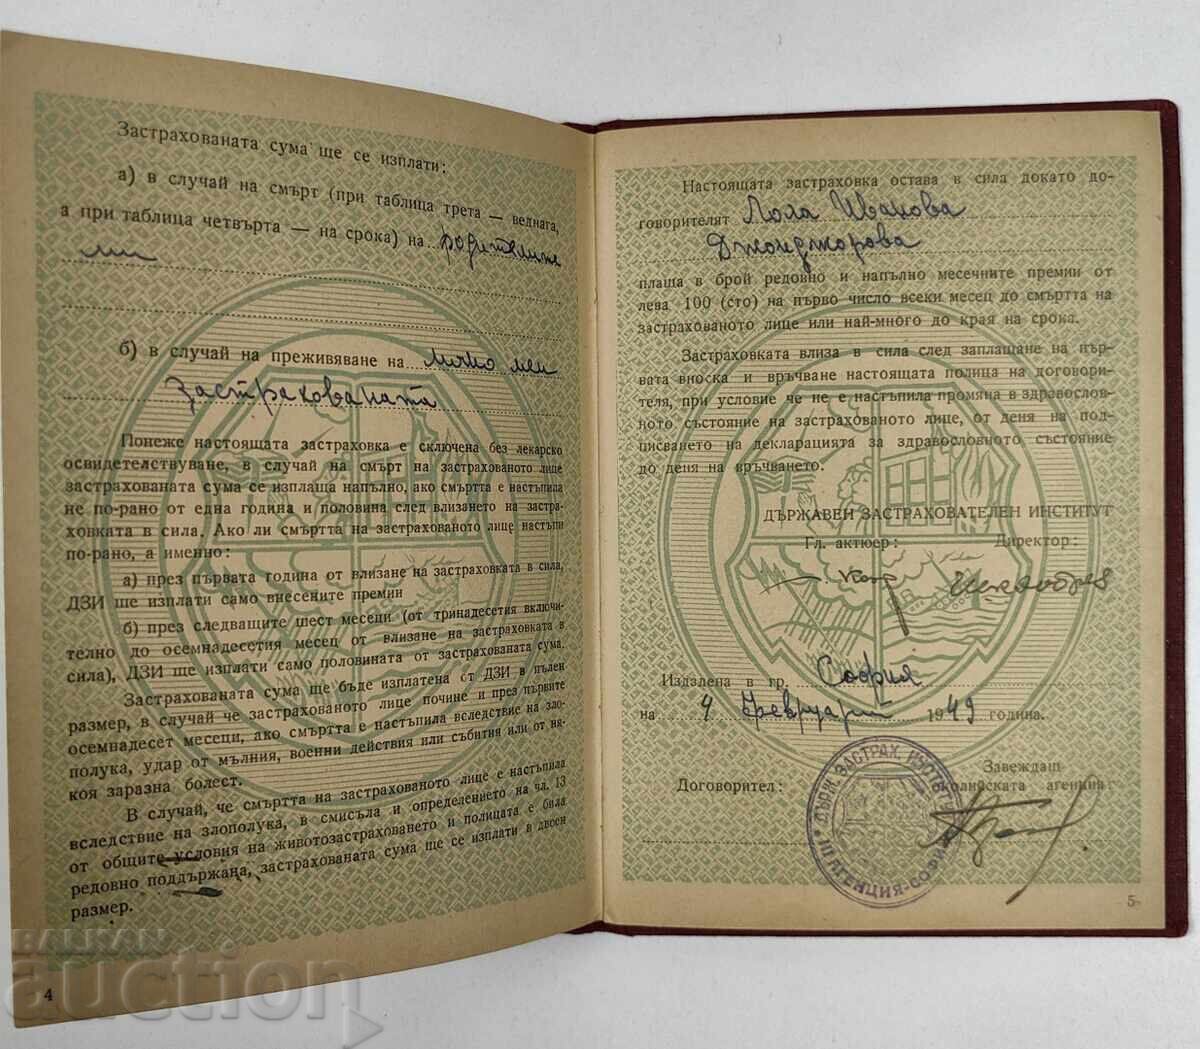 Застрахованата сума ще се изплати:
а) в случай на смърт (при таблица трета — веднага,
а при таблица четвърта — на срока) на родителите
ми
б) в случай на преживяване на лично мен
застрахованата
Понеже настоящата застраховка е сключена без лекарско
освидетелствуване, в случай на смърт на застрахованото лице
застрахованата сума се изплаща напълно, ако смъртта е настъпила
не по-рано от една година и половина след влизането на застра-
ховката в сила. Ако ли смъртта на застрахованото лице настъпи
по-рано, а именно:
а) през първата година от влизане на застраховката в сила,
ДЗИ ще изплати само внесените премии
б) през следващите шест месеци (от тринадесетия включи-
телно до осемнадесетия месец от влизане на застраховката в
сила), ДЗИ ще изплати само половината от застрахованата сума.
Застрахованата сума ще бъде изплатена от ДЗИ в пълен
размер, в случай че застрахованото лице почине и през първите
осемнадесет месеци, ако смъртта е настъпила вследствие на зло-
полука, удар от мълния, военни действия или събития или от ня-
коя заразна болест.
В случай, че смъртта на застрахованото лице е настъпила
вследствие на злополука, в смисъла и определението на чл. 13
от общите условия на животозастраховането и полицата е била
редовно поддържана, застрахованата сума ще се изплати в двоен
размер.
4
Настоящата застраховка остава в сила докато до-
говорителят Лола Иванова
Джонджорова
плаща в брой редовно и напълно месечните премии от
лева 100 (сто) на първо число всеки месец до смъртта на
застрахованото лице или най-много до края на срока.
Застраховката влиза в сила след заплащане на пър-
вата вноска и връчване настоящата полица на договори-
теля, при условие че не е настъпила промяна в здравослов-
ното състояние на застрахованото лице, от деня на под-
писването на декларацията за здравословното състояние
до деня на връчването.
ДЪРЖАВЕН ЗАСТРАХОВАТЕЛЕН ИНСТИТУТ
Гл. актюер: Директор:
Издадена в гр. София
на 4 Февруари 1949 година.
Договорител: Завеждащ
Софийската агенция:
ДЪРЖ. ЗАСТРАХ. ИНСТИТУТ
III АГЕНЦИЯ-СОФИЯ
5
BALKAN
auction